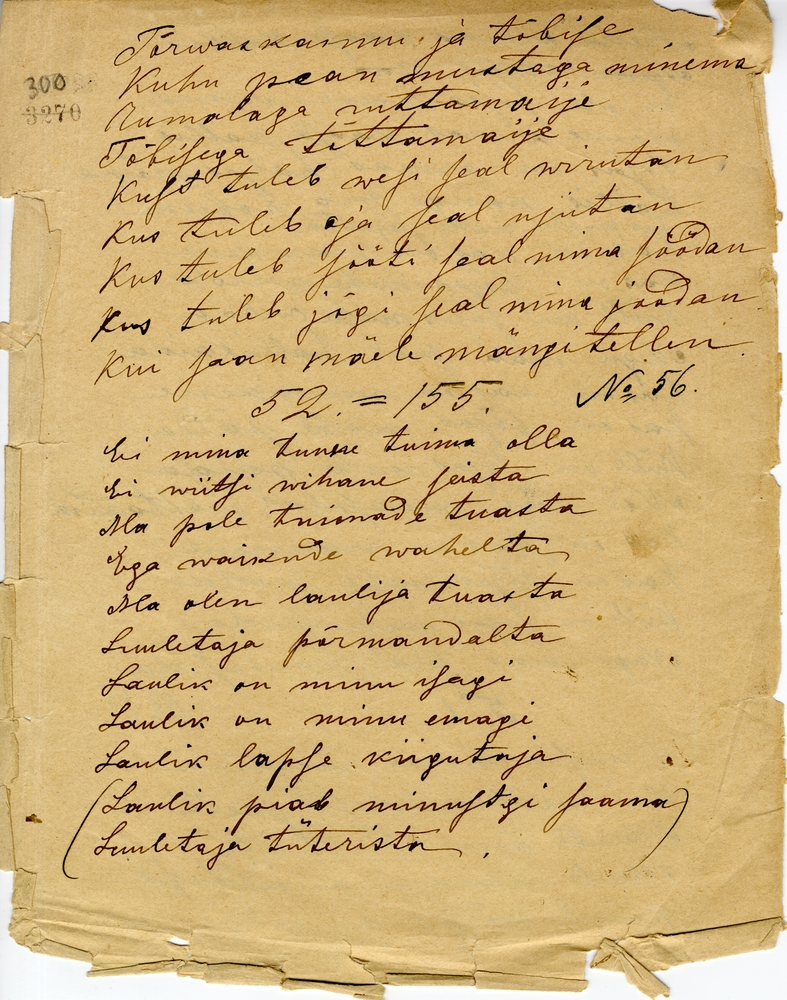 Tõrwaskannu ja tõbise
300
Kuhu pean mustaga minema
3270
Rumalaga ruttamaije
Tõbisega tõttamaije
Kust tuleb wesi seal wirutan
Kus tuleb oja seal ujutan
Kus tuleb sööti seal mina söödan
Kus tuleb jõgi seal mina joodan
Kui saan mäele mängitellen
52. = 155. № 56.
Ei mina tunne tuima olla
Ei wiitsi wihane seista
Ma pole tuimade tuasta
Ega waikude wahelta
Ma olen laulija tuasta
Luuletaja põrmandalta
Laulik on minu isagi
Laulik on minu emagi
Laulik lapse kiigutaja
(Laulik piab minustgi saama)
Luuletaja tüterista.